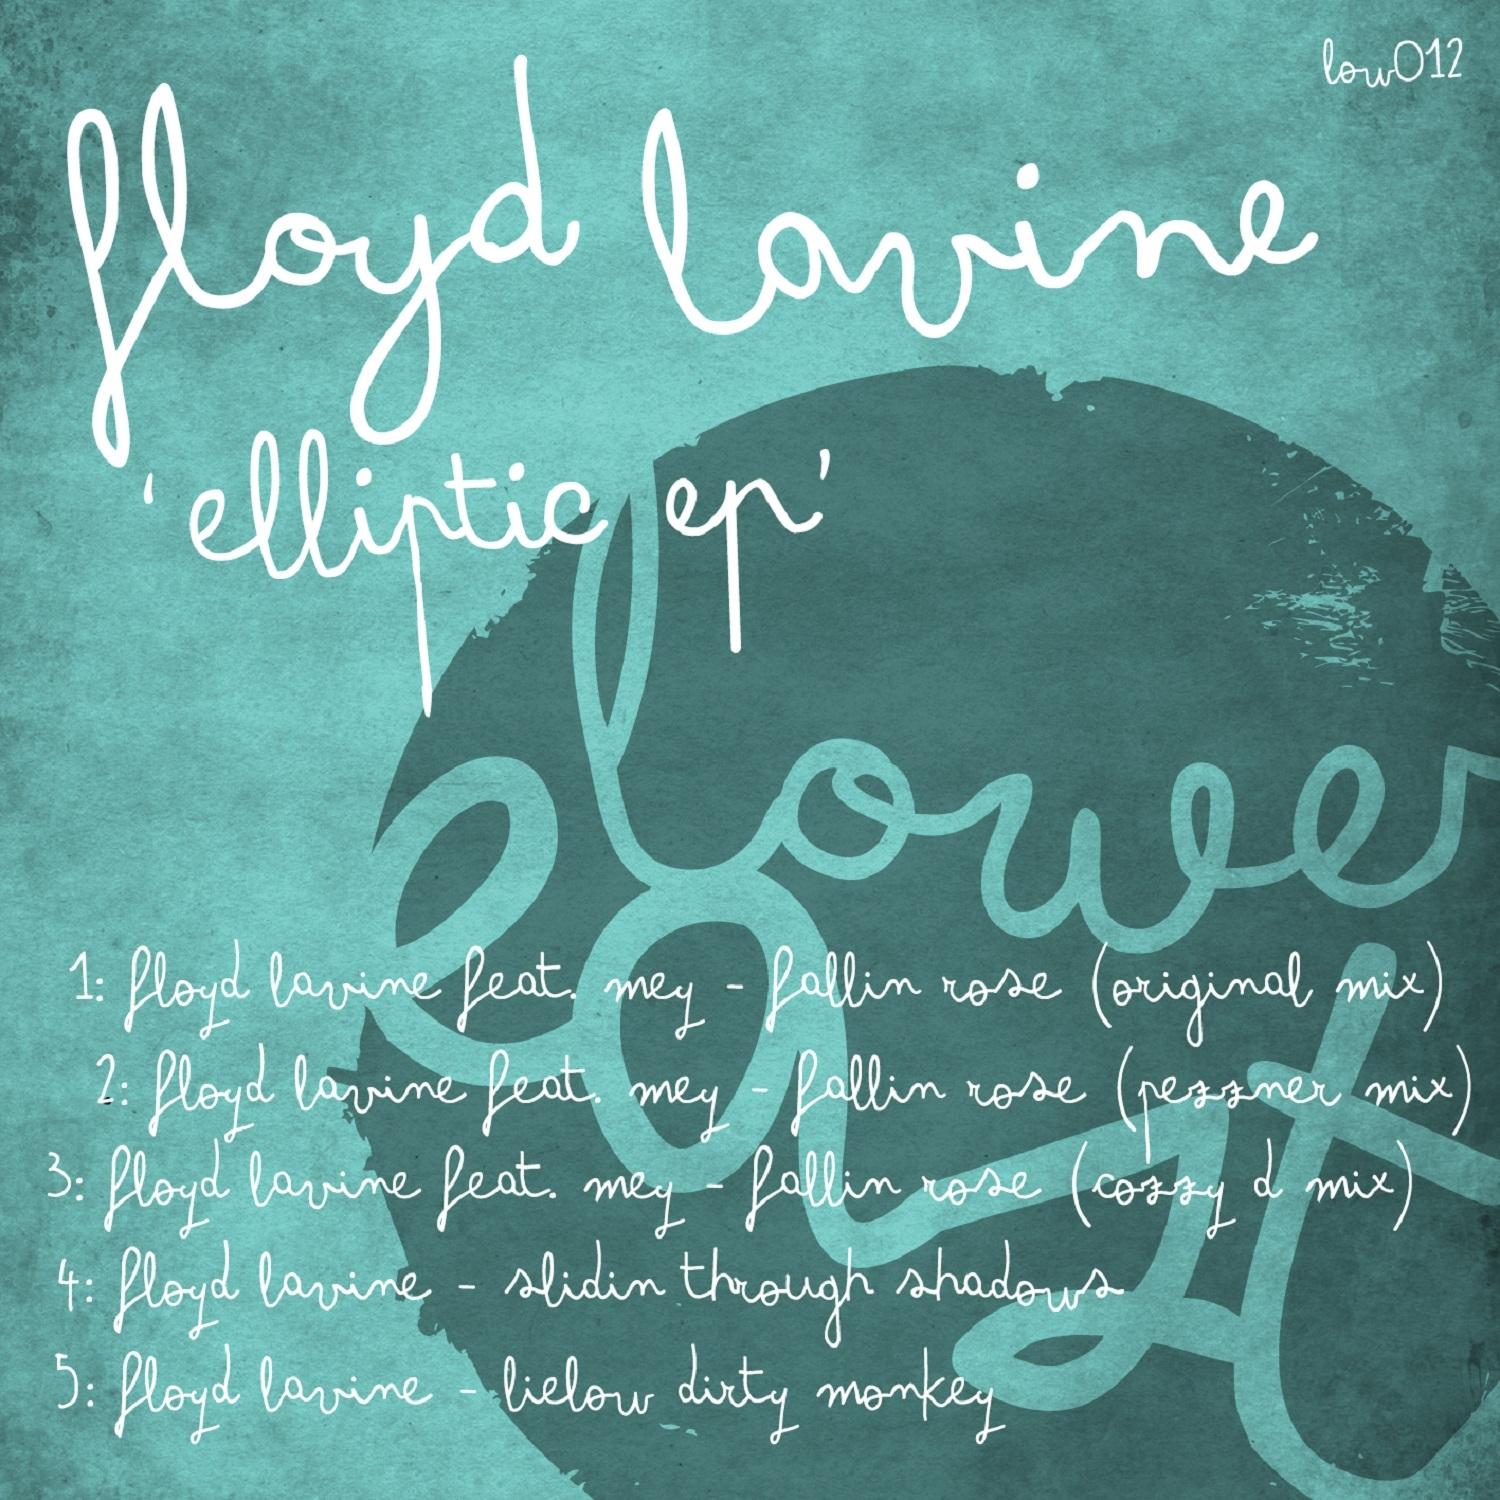 low012
floyd lavine
'elliptic ep'
lower
east
1: floyd lavine feat. mey - fallin rose (original mix)
2: floyd lavine feat. mey - fallin rose (pezzner mix)
3: floyd lavine feat. mey - fallin rose (cozzy d mix)
4: floyd lavine - slidin through shadows
5: floyd lavine - lielow dirty monkey